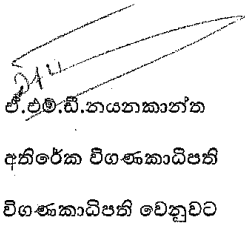 ඒ.එම්.ඩී.නයනකාන්ත
අතිරේක විගණකාධිපති
විගණකාධිපති වෙනුවට